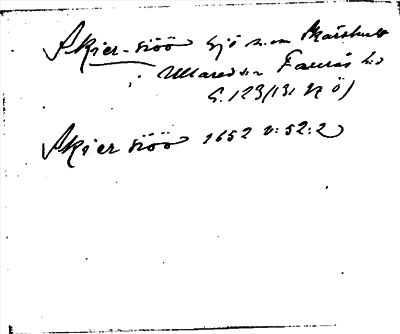 Skier-siöö Sjö n. om Skärshult
i Ullared s:n Faurås h:d
G. 123 (131 N Ö)
Skier siöö 1652 v: 52: 2